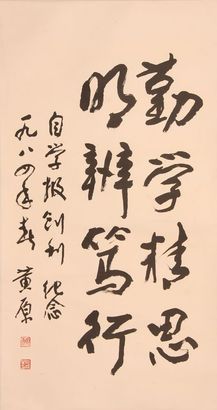 勤学精思
明辨笃行
自学报创刊 纪念
一九八四年春 黄原